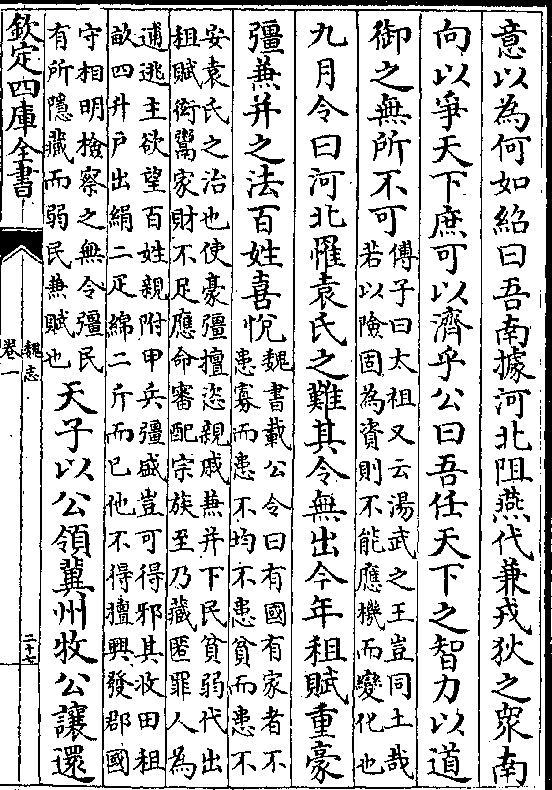 意以為何如紹曰吾南據河北阻燕代兼戎狄之衆南
向以爭天下庶可以濟乎公曰吾任天下之智力以道
御之無所不可
傅子曰太祖又云湯武之王豈同土哉
若以險固為資則不能應機而變化也
九月令曰河北罹袁氏之難其令無出今年租賦重豪
彊兼并之法百姓喜悅
魏書載公令曰有國有家者不
患寡而患不均不患貧而患不
安袁氏之治也使豪彊擅恣親戚兼并下民貧弱代出
租賦衒鬻家財不足應命審配宗族至乃藏匿罪人為
逋逃主欲望百姓親附甲兵彊盛豈可得邪其收田租
畝四升戶出絹二疋綿二斤而已他不得擅興發郡國
守相明檢察之無令彊民
有所隱藏而弱民兼賦也
天子以公領冀州牧公讓還
欽定四庫全書
魏志
卷一
二十七